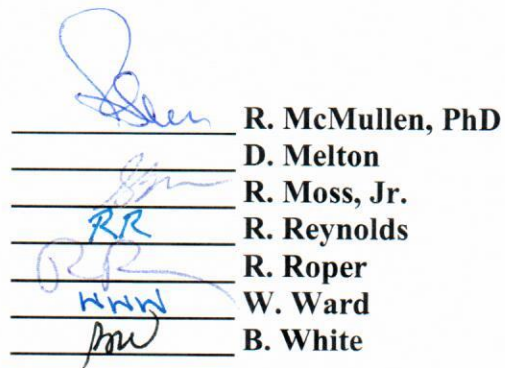 R. McMullen, PhD
D. Melton
R. Moss, Jr.
RR R. Reynolds
RR R. Roper
WWW W. Ward
BW B. White